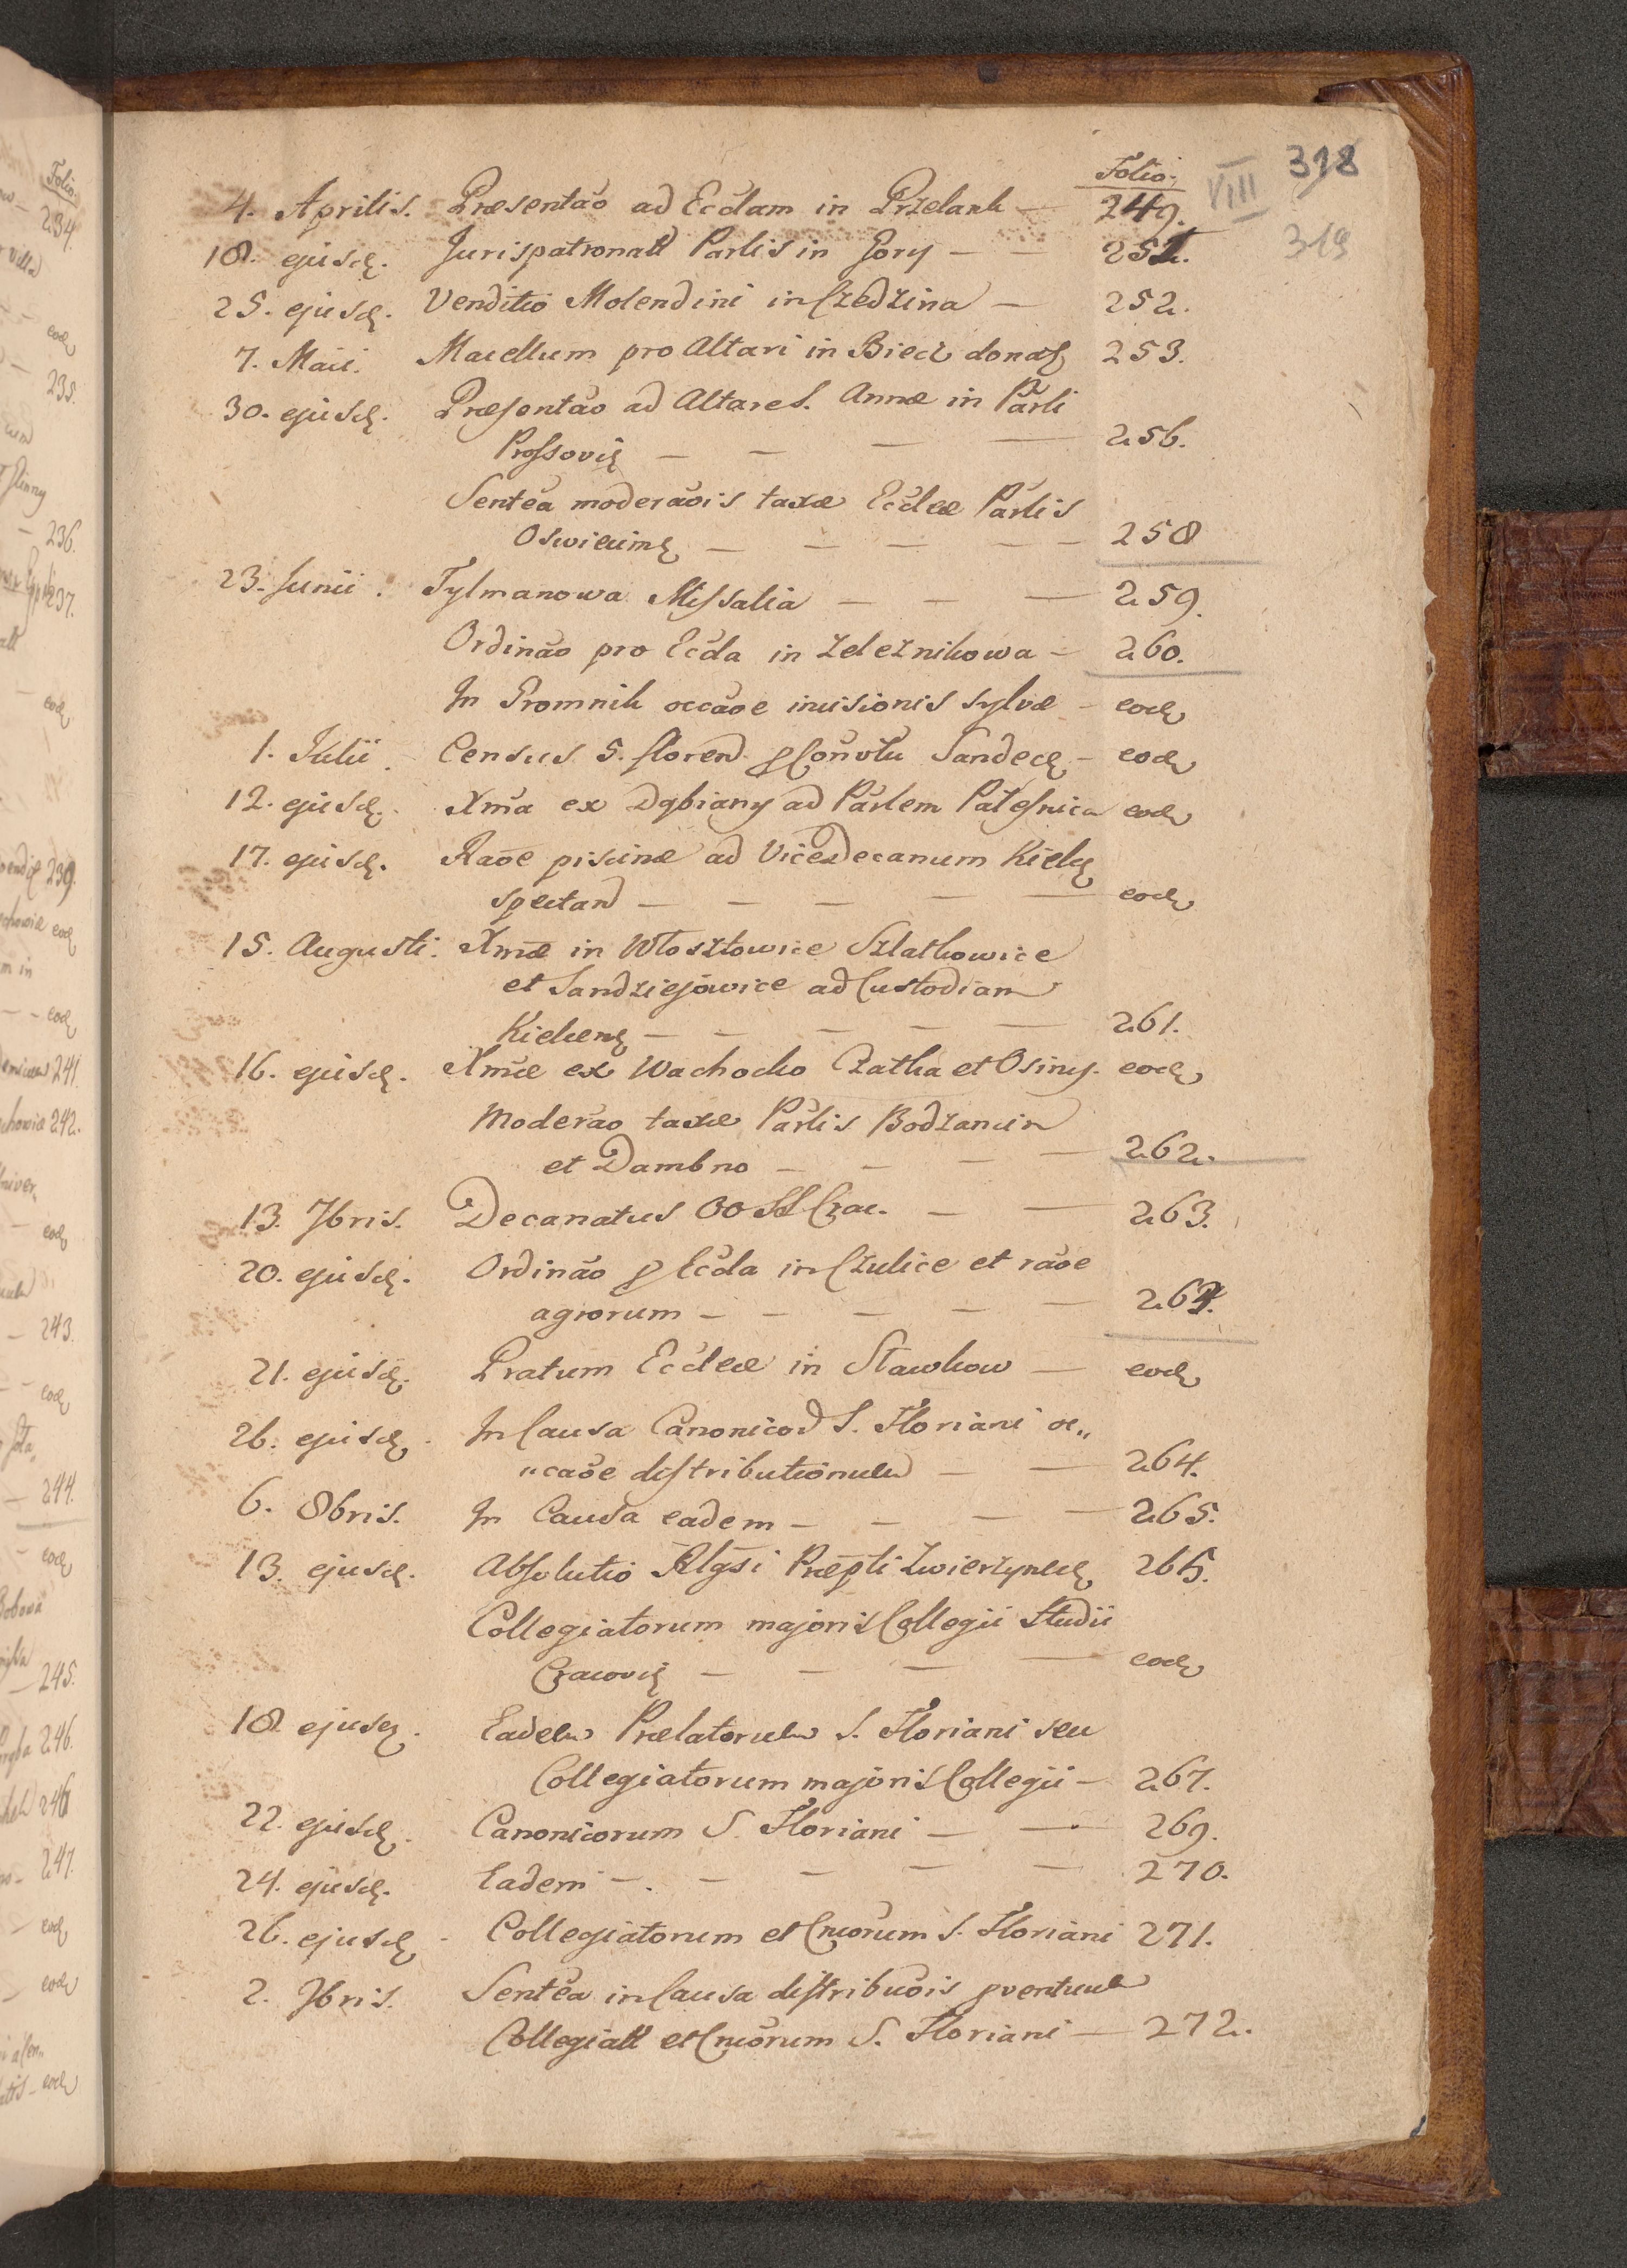 Folio.
VIII 318
319
4. Aprilis. Præsentão ad Ecclam in Przelank — 249.
18. ejusd. Jurispatronatt Parlis in Gory — — 251.
25. ejusd. Venditio Molendini in Czedzina — 252.
7. Maii. Macellum pro Altari in Biecz donat 253.
30. ejusd. Præsentão ad Altare S. Annæ in Parli
Prossovię — — — — 256.
Sentea moderaõis taxæ Ecclæ Parlis
Oswiecimę — — — — — 258
23. Junii. Tylmanowa Missalia — — — 259.
Ordinão pro Eccla in Zeleznikowa — 260.
In Promnik occãoe incisionis sylvæ — eod
1. Julii. Census 5. floren p Conv̄tu Sandecę — eod
12. ejusd. Xma ex Dąbiany ad Parlem Paleśnica eod
17. ejusd. Raõe piscinæ ad ViceDecanum Kielcę
spectan — — — — — eod
15. Augusti. Xmæ in Włosztowice Szlatkowice
et Sandziejowice ad Custodiam
Kielcenę — — — — — 261.
16. ejusd. Xmæ ex Wachocko Czatka et Osiny. eod
Moderão taxæ Parlis Bodzancin
et Dambno — — — — 262.
13. 7bris. Decanatus OO SS Crac. — — 263.
20. ejusd. Ordinão p Eccla in Czulice et raõe
agrorum — — — — — 264.
21. ejusd. Pratum Ecclæ in Sławkow — eod
26. ejusd. In Causa Canonicor S. Floriani oc„
„caõe distributionum — — 264.
6. 8bris. In Causa eadem — — — — 265.
13. ejusd. Absolutio Rlgsi Præpti Zwierzynecę 265.
Collegiatorum majoris Collegii Studii
Cracovię — — — — eod
18 ejusd. Eadem Prælatorum S. Floriani seu
Collegiatorum majoris Collegii — 267.
22. ejusd. Canonicorum S. Floriani — — 269.
24. ejusd. Eadem — — — — — 270.
26. ejusd. Collegiatorum et Cnicorum S. Floriani 271.
2. 9bris. Sentea in Causa distribuõis pventuum
Collegiatt et Cnicorum S. Floriani — 272.